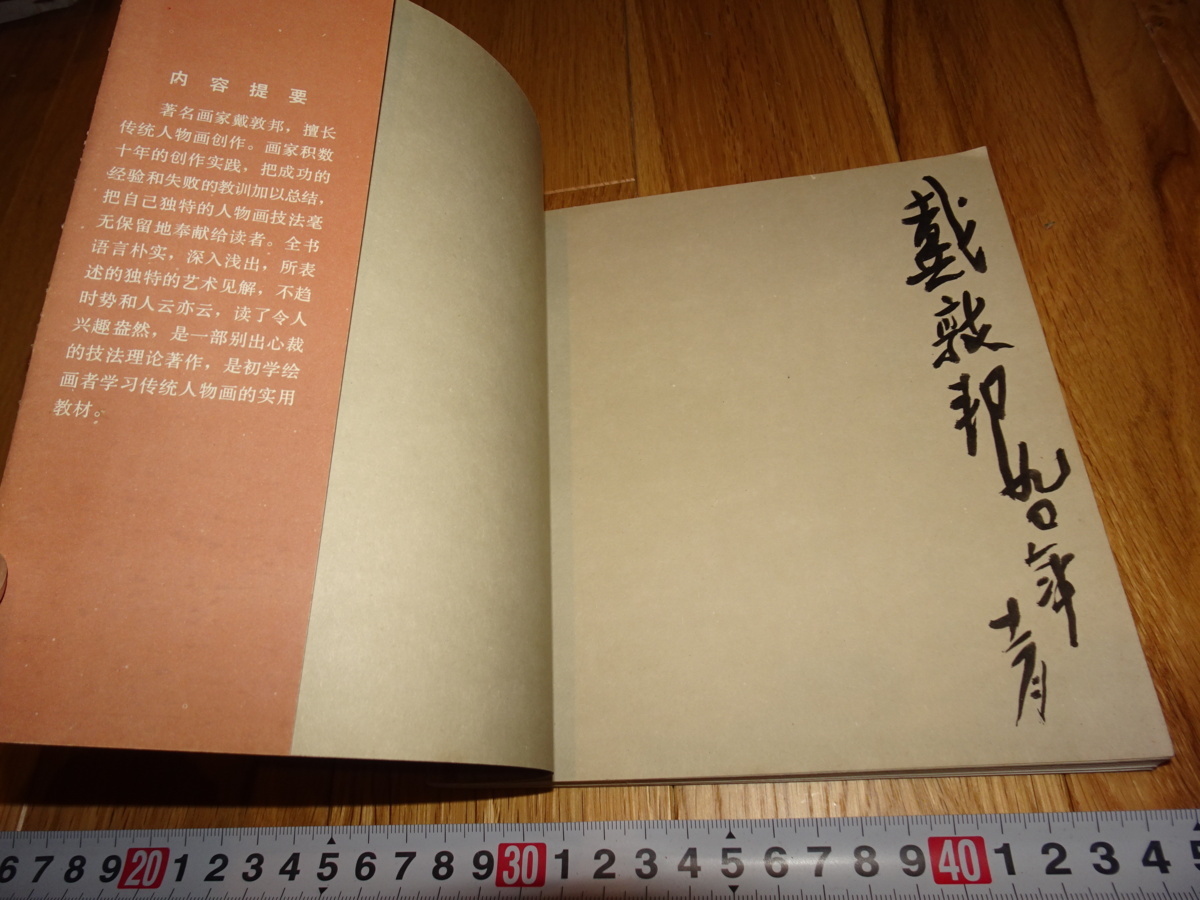 内容提要
著名画家戴敦邦，擅长
传统人物画创作。画家积数
十年的创作实践，把成功的
经验和失败的教训加以总结，
把自己独特的人物画技法毫
无保留地奉献给读者。全书
语言朴实，深入浅出，所表
述的独特的艺术见解，不趋
时势和人云亦云，读了令人
兴趣盎然，是一部别出心裁
的技法理论著作，是初学绘
画者学习传统人物画的实用
教材。
戴敦邦九〇年
十二月
6 7 8 9 20 1 2 3 4 5 6 7 8 9 30 1 2 3 4 5 6 7 8 9 40 1 2 3 4 5